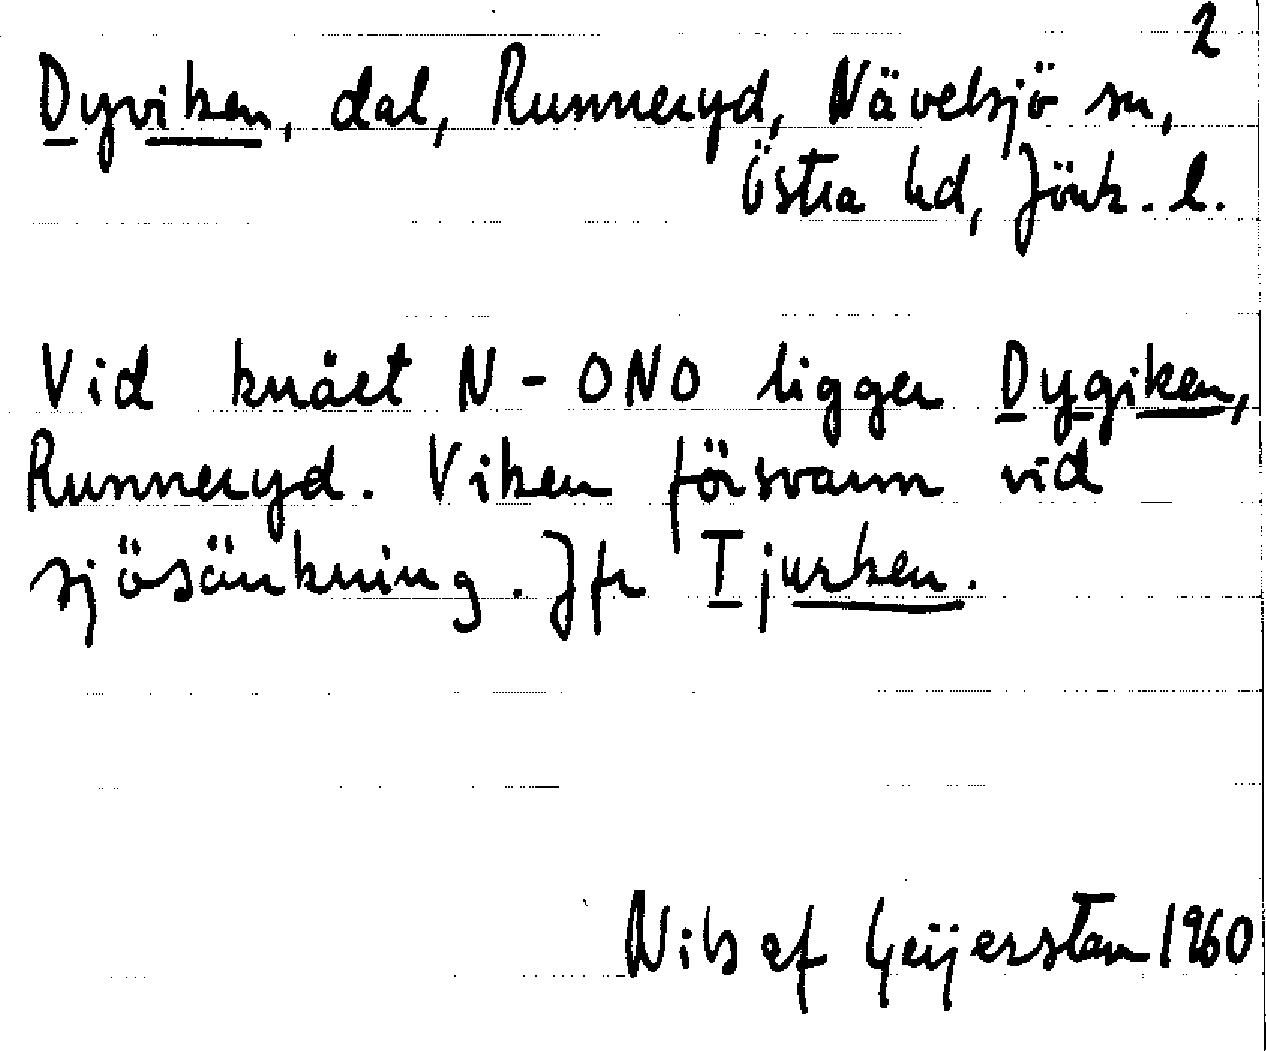 2
Dyviken, dal, Runneryd, Nävelsjö sn,
Östra hd, Jönk. l.
Vid knäet N - ONO ligger Dygiken,
Runneryd. Viken försvann vid
sjösänkning. Jfr Tjurken.
Nils af Geijerstam 1960